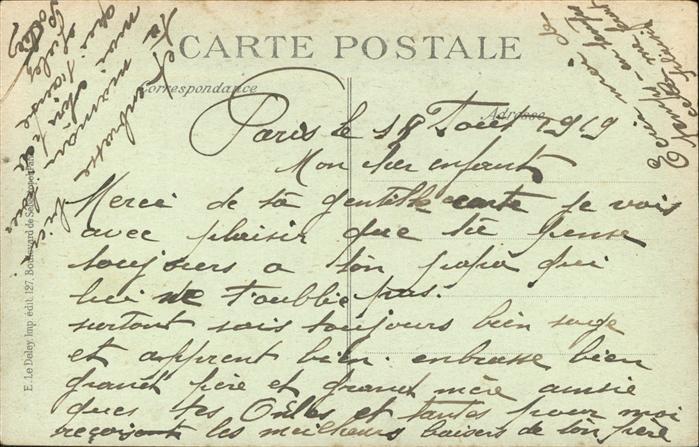 CARTE POSTALE
Correspondance
Adresse
Paris le 18 Aout 1919.
Mon cher enfant
Merci de ta gentille carte je vois
avec plaisir que tu pense
toujours a ton papa qui
lui ne t'oublie pas.
surtout sois toujours bien sage
et apprent bien. enbrasse bien
grand père et grand mère aussie
ques tes Oncles et tantes pour moi
reçoivent les meilleurs baisers de ton père
Tu enbrasse
maman
E. Le Deley, Imp. édit. 127, Boulevard de Sébastopol, Paris